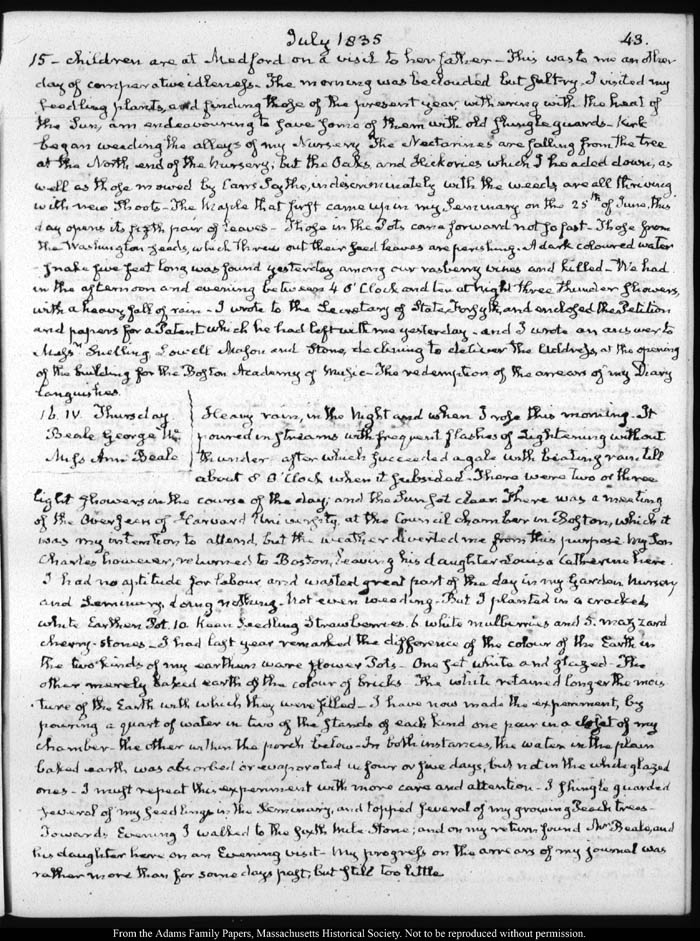 July 1835 43.
15 - children are at Medford on a visit to her father - This was to me another
day of comparative idleness - The morning was beclouded but sultry - I visited my
seedling plants, and finding those of the present year, withering with the heat of
the Sun, am endeavouring to save some of them with old shingle guards - Kirk
began weeding the alleys of my Nursery The Nectarines are falling from the tree
at the North end of the nursery; but the Oaks, and Hickories which I headed down, as
well as those mowed by Carr's Scythe, indiscriminately with the weeds are all thriving
with new shoots - The Maple that first came up in my Seminary on the 25th of June, this
day opens its fifth pair of leaves - Those in the Pots come forward not so fast - Those from
the Washington seeds, which threw out their seed leaves are perishing. A dark coloured water
-snake five feet long was found yesterday among our rasberry vines and killed - We had
in the afternoon and evening between 4 O'Clock and ten at Night three thunder showers,
with a heavy fall of rain - I wrote to the Secretary of State Forsyth, and enclosed the Petition
and papers for a Patent which he had left with me yesterday - and I wrote an answer to
Messrs Snelling, Lowell Mason and Stone, declining to deliver the Address, at the opening
of the building for the Boston Academy of Music - The redemption of the arrears of my Diary
languishes.
16. IV. Thursday
Beale George W.
Miss Ann Beale
Heavy rain, in the Night and when I rose this morning. It
poured in streams with frequent flashes of Lightening without
thunder after which succeeded a gale with beating rain, till
about 8 O'Clock when it subsided. There were two or three
light showers in the course of the day; and the Sun set clear. There was a meeting
of the Overseers of Harvard University, at the Council chamber in Boston, which it
was my intention to attend, but the weather diverted me from this purpose. My Son
Charles however, returned to Boston, leaving his daughter Louisa Catherine here.
I had no aptitude for labour, and wasted great part of the day in my Garden Nursery
and Seminary, doing nothing - Not even weeding - But I planted in a cracked
white Earthen Pot. 10. Keen Seedling Strawberries. 6 white mulberries and 5. mazzard
cherry-stones - I had last year remarked the difference of the colour of the Earth in
the two kinds of my earthen ware flower Pots - One set white and glazed - The
other merely baked earth of the colour of bricks - The white retained longer the mois
-ture of the Earth with which they were filled - I have now made the experiment, by
pouring a quart of water in two of the stands of each kind one pair in a closet of my
chamber - the other within the porch below - In both instances, the water in the plain
baked earth was absorbed or evaporated in four or five days, but not in the white glazed
ones - I must repeat this experiment with more care and attention - I shingle guarded
several of my seedlings in the Seminary, and topped several of my growing Peach trees -
Towards Evening I walked to the sixth mile Stone; and on my return found Mr Beale, and
his daughter here on an Evening visit - My progress on the arrears of my journal was
rather more than for some days past, but still too little
From the Adams Family Papers, Massachusetts Historical Society. Not to be reproduced without permission.